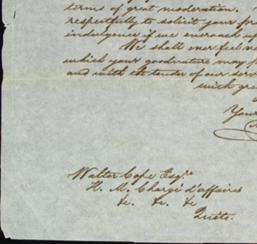 terms of great moderation.
respectfully to solicit your
indulgence if we encroach
We shall ever feel
which your goodnature may
and with the tender of our
with
Your
Walter Cope Esqre
H. M. Chargé d'affaires
&c. &c. &c
Quito.